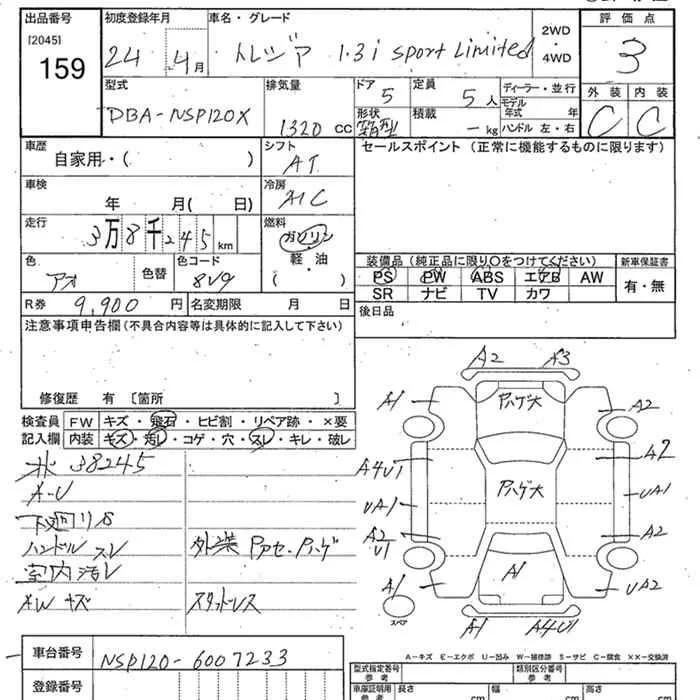 出品番号 初度登録年月 車名・グレード 2WD・4WD 評価点
[2045] 159 24年 4月 トレジア 1.3i sport Limited 3
型式 排気量 ドア 定員 ディーラー・並行 外装 内装
DBA-NSP120X 1320 cc 5 5人 モデル年式 年 C C
形状 箱型 積載 - kg ハンドル 左・右
車歴 シフト セールスポイント (正常に機能するものに限ります)
自家用・( ) AT
車検 冷房
年 月( 日) A/C
走行 燃料
3万8千245 km ガソリン・軽・油 ( )
色 色替 色コード
アオ 8V9
装備品 (純正品に限り○をつけてください) 新車保証書
PS PW ABS エアB AW 有・無
SR ナビ TV カワ
R券 9,900円 名変期限 月 日 後日品
注意事項申告欄 (不具合内容等は具体的に記入して下さい)
修復歴 有 〔箇所 〕
検査員 FW キズ・飛石・ヒビ割・リペア跡・×要
記入欄 内装 キズ・汚レ・コゲ・穴・スレ・キレ・破レ
38245
A-U
下廻リS
ハンドル スレ
室内汚レ
AW キズ
外装 Pアセ・Pハゲ
スタッドレス
A2 A3
A1 Pハゲ大 A2
A4U1 A2
UA1 Pハゲ大 UA1
A2 U1 A2
A1 A1 UA2
スペア A1 A4U1
A-キズ E-エクボ U-凹み W-補修跡 S-サビ C-腐食 ××-交換済
車台番号 NSP120-6007233
登録番号
型式指定番号 参考 類別区分番号 参考
車庫証明用 参考 長さ cm 幅 cm 高さ cm